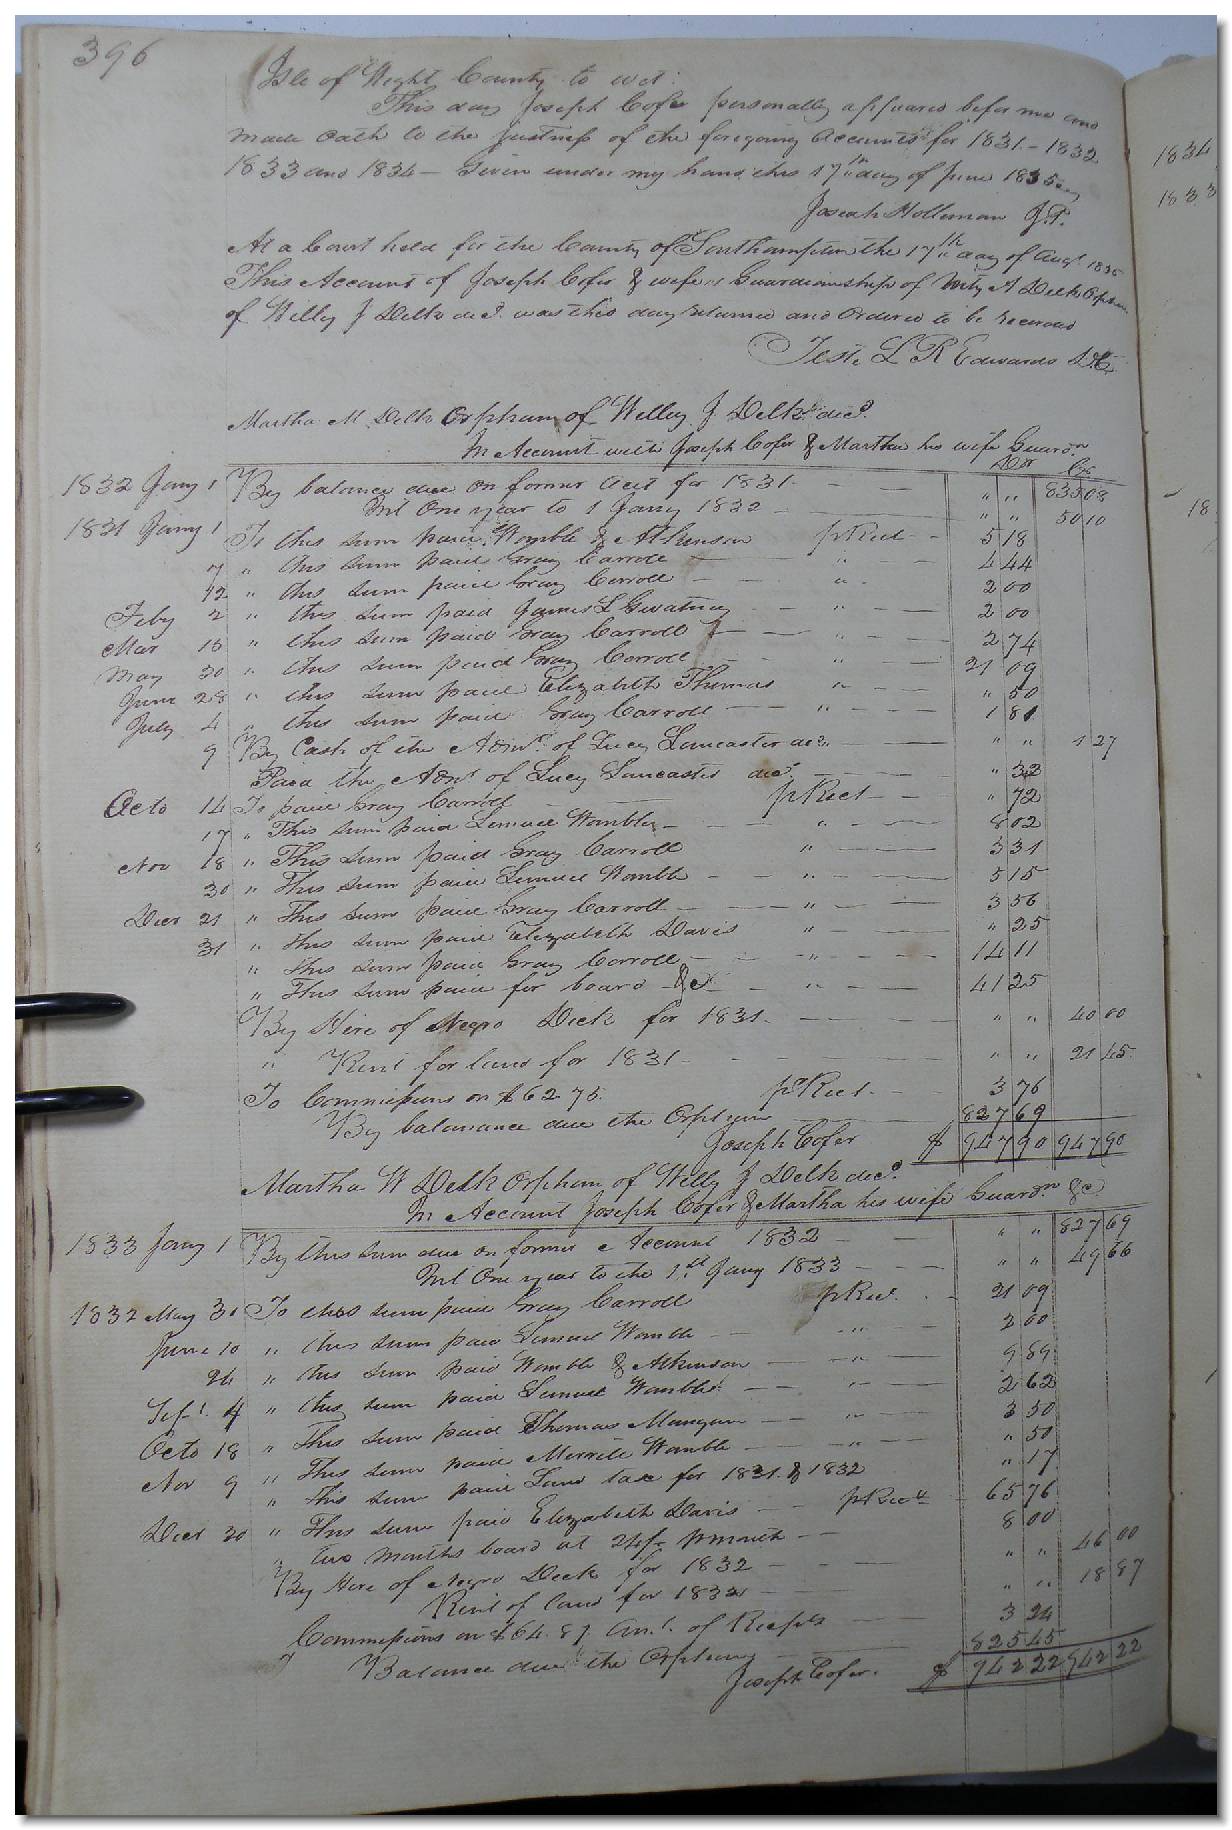 396
Isle of Wight County to wit:
This day Joseph Cofer personally appeared before me and
made oath to the justness of the foregoing accounts for 1831 - 1832
1833 and 1834 - Given under my hand this 17th day of June 1835
Josiah Holleman J.P.
At a Court held for the County of Southampton the 17th day of Augt 1835
This Account of Joseph Cofer & wife's Guardianship of A Delk Orphan
of Willey J Delk decd. was this day returned and Ordered to be recorded
Teste L R Edwards D.C.
Martha M Delk Orpham of Willey J Delk decd.
In Account with Joseph Cofer & Martha his wife Guardn
Dr Cr
1832 Jany 1 By balance due on former acct for 1831 - - " " 835 08
Int One year to 1 Jany 1832 - - " " 50 10
1831 Jany 1 To this sum paid Womble & Atkinson pRect - - 5 18
7 " this sum paid Gray Carroll - " - 4 44
12 " this sum paid Gray Carroll - - " - 2 00
Feby 2 " this sum paid James L Gwatney - " - - 2 00
Mar 15 " this sum paid Gray Carroll - - " - - 2 74
May 30 " this sum paid Gray Carroll - - " - - 21 09
June 28 " this sum paid Elizabeth Thomas " - - " 50
July 4 " this sum paid Gray Carroll - - " - - 1 81
9 By Cash of the Admr. of Lucy Lancaster decd. - - " " 1 27
Paid the Admr of Lucy Lancaster decd. - - " 32
Octo 14 To paid Gray Carroll - pRect - - " 72
17 " This sum paid Lemuel Womble - - " - - 8 02
Nov 18 " This sum paid Gray Carroll " - - 3 31
30 " This sum paid Lemuel Womble - - " - - 5 15
Decr 21 " This sum paid Gray Carroll - - " - - 3 56
31 " This sum paid Elizabeth Davis " - - " 25
" This sum paid Gray Carroll - - " - - 14 11
" This sum paid for board &c - " - - 41 25
By Hire of Negro Dick for 1831 - - " " 40 00
" Rent for land for 1831 - - " " 21 45
To Commissions on $62.75. pRect - - 3 76
By balanance due the Orphan 827 69
Joseph Cofer $ 947 90 947 90
Martha W Delk Orpham of Willy J Delk decd.
In Account Joseph Cofer & Martha his wife Guardn &c
1833 Jany 1 By this sum due on former Account 1832 - - " " 827 69
Int One year to the 1st Jany 1833 - - " " 49 66
1832 May 30 To this sum paid Gray Carroll pRect. - 21 09
June 10 " this sum paid Lemuel Womble - - " - 2 00
24 " this sum paid Womble & Atkinson - - " - 9 89
Sept. 4 " this sum paid Lemuel Womble - " - - 2 62
Octo 18 " This sum paid Thomas Mangum - - " - 3 50
Nov 9 " This sum paid Merritt Womble - - " - " 50
" This sum paid Land tax for 1831 & 1832 " 17
Decr 30 " This sum paid Elizabeth Davis - - pRect - 65 76
" two months board at 24/ pr month - - 8 00
By Hire of Negro Dick for 1832 - - " " 46 00
Rent of land for 1832 - - " " 18 87
Commissions on $64.87 amt. of Reciepts - - 3 24
Balance due the Orphan 825 45
Joseph Cofer. $ 942 22 942 22
1834
1833
18